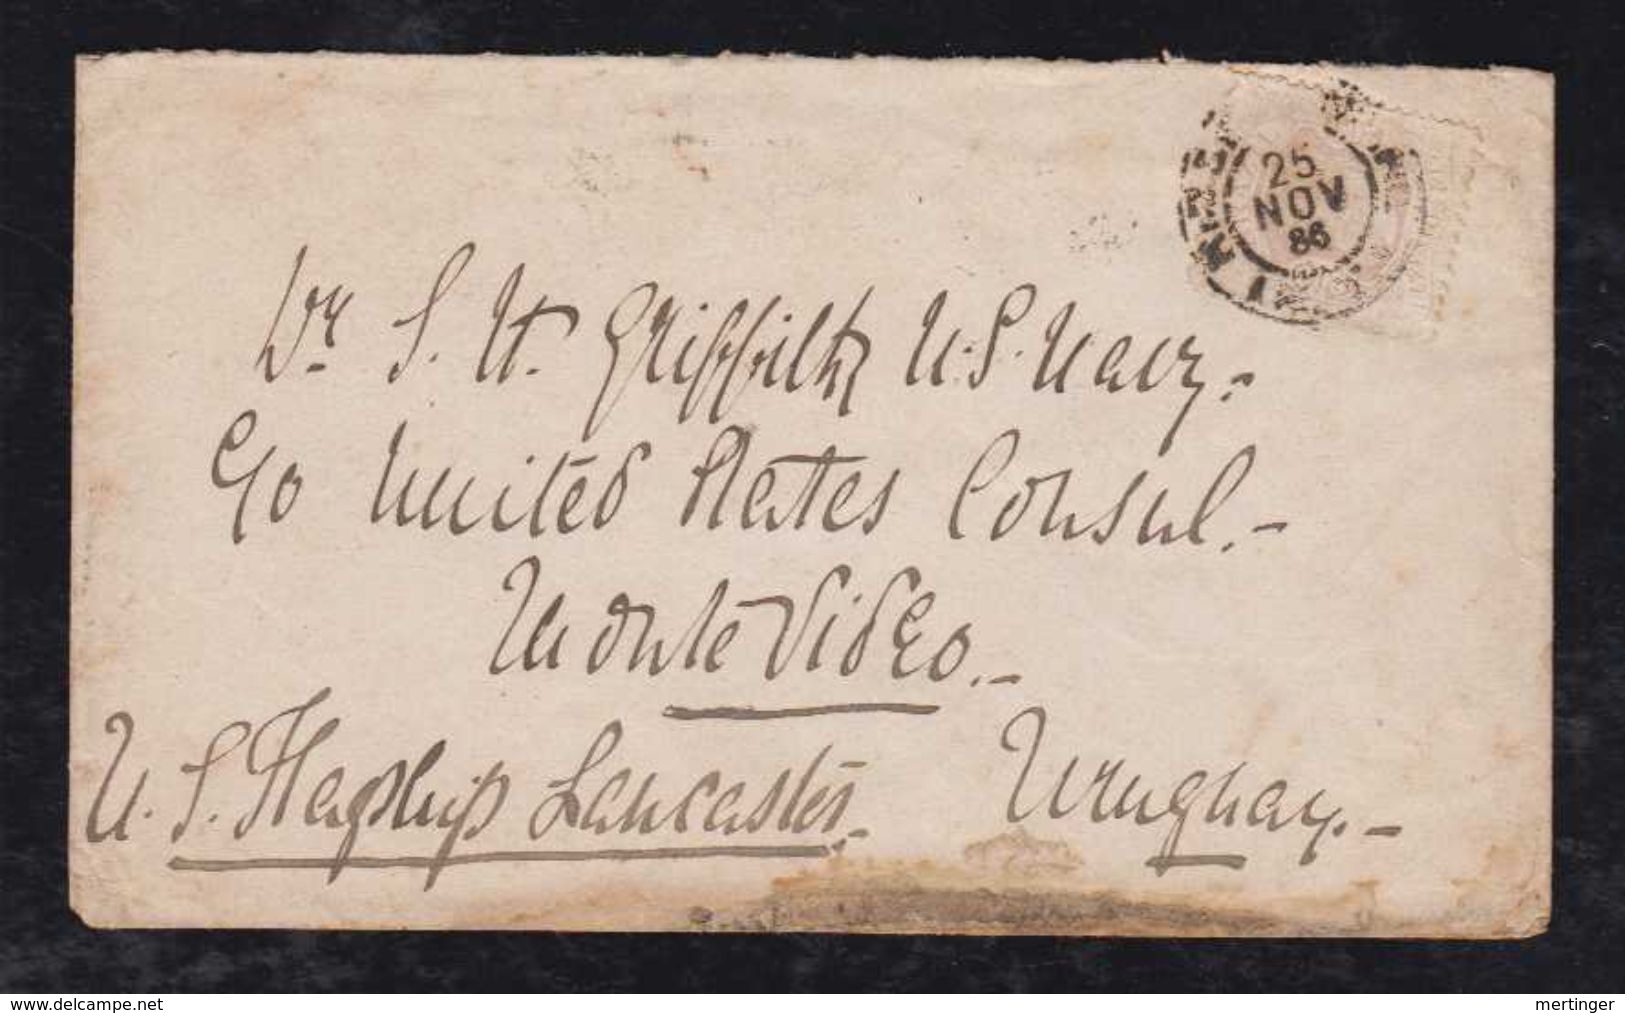 25
NOV
86
Dr. S. H. Griffith U.S. Navy.-
C/o United States Consul.-
Monte Video.-
U. S. Flagship Lancaster. Uruguay.-
www.delcampe.net
mertinger